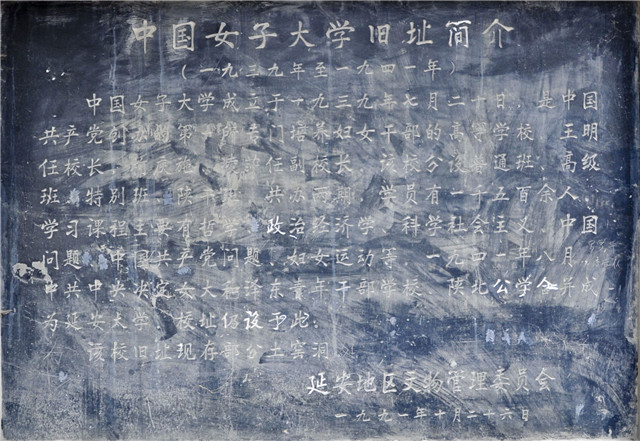 中国女子大学旧址简介
(一九三九年至一九四一年)
中国女子大学成立于一九三九年七月二十日,是中国
共产党创办的第一所专门培养妇女干部的高等学校。王明
任校长,柯庆施 任副校长。该校分设普通班、高级
班、特别班、陕干班,共办两期,学员有一千五百余人。
学习课程主要有哲学、政治经济学、社会主义、中国
问题、中国共产党问题、妇女运动等 一九四一年八月,
中共中央决定女大和泽东青年干部学校、陕北公学合并成
为延安大学,校址仍设于此。
该校旧址现存部分土窑洞。
延安地区文物管理委员会
一九九一年十月二十六日